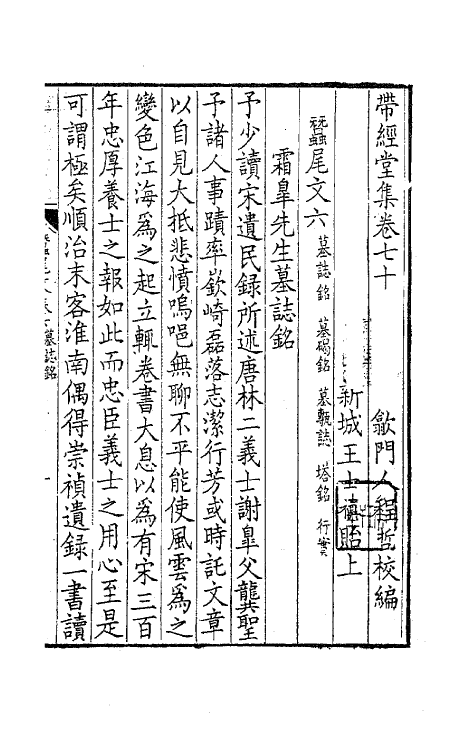 帶經堂集卷七十
歙門人程哲校編
新城王士禛貽上
蠶尾文六 墓誌銘 墓碣銘 墓甎誌 塔銘 行實
霜皐先生墓誌銘
予少讀宋遺民錄所述唐林二義士謝皐父龔聖
予諸人事蹟率嶔崎磊落志潔行芳或時託文章
以自見大抵悲憤嗚唈無聊不平能使風雲爲之
變色江海爲之起立輒卷書大息以爲有宋三百
年忠厚養士之報如此而忠臣義士之用心至是
可謂極矣順治末客淮南偶得崇禎遺錄一書讀
墓誌銘
一